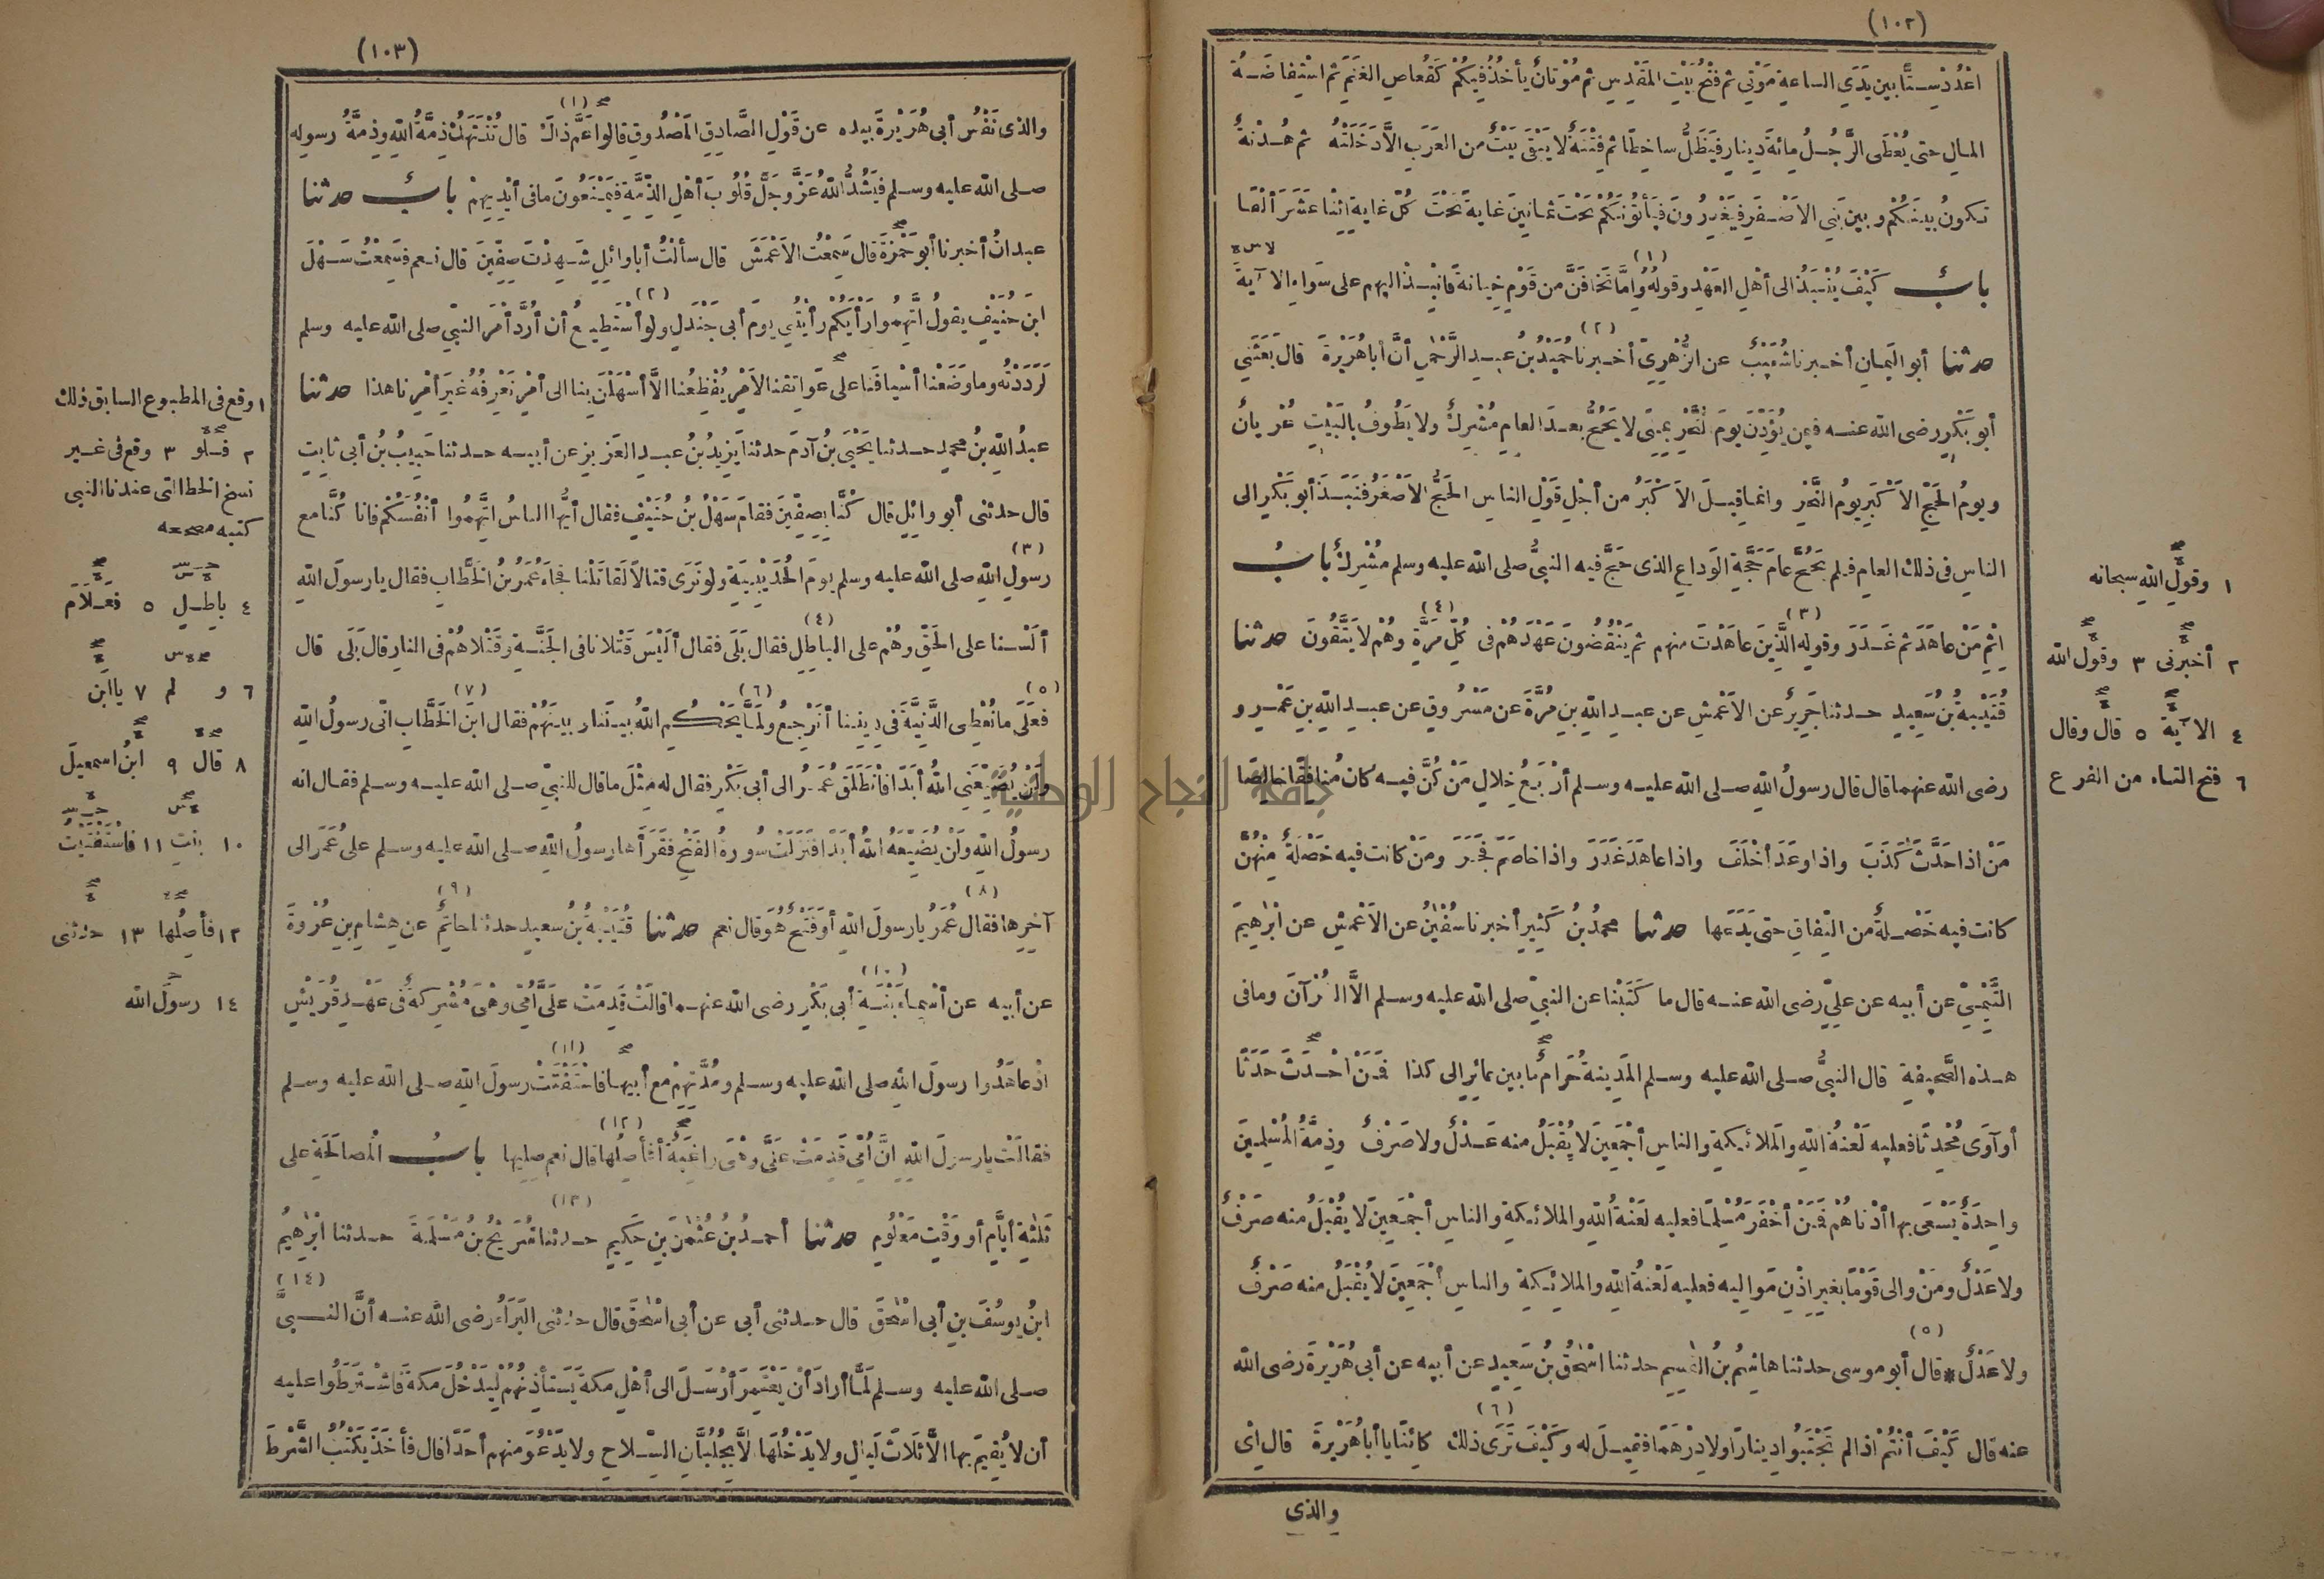 (١٠٢)
اعْدُدْ سِتًّا بين يَدَيِ الساعةِ مَوْتِي ثم فَتْحُ بَيْتِ المَقْدِسِ ثم مُوْتانٌ يأخُذُ فِيكُمْ كَقُعاصِ الغَنَمِ ثم اسْتِفاضَةُ
المالِ حتى يُعْطَى الرَّجُلُ مِائةَ دِينارٍ فَيَظَلُّ ساخِطًا ثم فِتْنَةٌ لا يَبْقَى بَيْتٌ من العَرَبِ إلَّا دَخَلَتْهُ ثم هُدْنَةٌ
تكونُ بينَكُمْ وبين بَنِي الاَصْفَرِ فيَغْدِرُونَ فيَأْتُونَكُمْ تَحْتَ ثمانِينَ غايةً تَحْتَ كُلِّ غايةٍ اثْنا عَشَرَ ألْفًا
بابٌ كَيْفَ يُنْبَذُ الى أهْلِ العَهْدِ وقولُهُ (١) وإمَّا تَخافَنَّ من قَوْمٍ خِيانةً فانْبِذْ اليهم على سَواءٍ الآيَةَ
حدثنا أبو اليَمانِ أخبرنا شُعَيْبٌ عن الزُّهْرِيِّ أخبرنا (٢) حُمَيْدُ بنُ عبدِ الرَّحْمٰنِ أنَّ أبا هُرَيْرَةَ قال بَعَثَنِي
أبو بَكْرٍ رضى الله عنه فيمن يُؤَذِّنُ يومَ النَّحْرِ بِمِنًى لا يَحُجُّ بعدَ العامِ مُشْرِكٌ ولا يَطُوفُ بالبَيْتِ عُرْيانٌ
ويومُ الحَجِّ الاَكْبَرِ يومُ النَّحْرِ وانما قِيلَ الاَكْبَرُ من أجْلِ قَوْلِ الناسِ الحَجُّ الاَصْغَرُ فنَبَذَ أبو بَكْرٍ الى
الناسِ فى ذلك العامِ فلم يَحُجَّ عامَ حَجَّةِ الوَداعِ الذى حَجَّ فيه النبىُّ صلى الله عليه وسلم مُشْرِكٌ بابُ
إثْمِ مَنْ عاهَدَ ثم غَدَرَ وقولِهِ (٣) الَّذِينَ عاهَدْتَ منهم ثم يَنْقُضُونَ عَهْدَهُمْ فى كُلِّ مَرَّةٍ (٤) وهُمْ لا يَتَّقُونَ حدثنا
قُتَيْبَةُ بنُ سَعِيدٍ حدثنا جَرِيرٌ عن الاَعْمَشِ عن عبدِ اللهِ بنِ مُرَّةَ عن مَسْرُوقٍ عن عبدِ اللهِ بنِ عَمْرٍو
رضى الله عنهما قال قال رسولُ اللهِ صلى الله عليه وسلم أرْبَعُ خِلالٍ مَنْ كُنَّ فيه كان مُنافِقًا خالِصًا
مَنْ اذا حَدَّثَ كَذَبَ واذا وعَدَ أخْلَفَ واذا عاهَدَ غَدَرَ واذا خاصَمَ فَجَرَ ومَنْ كانت فيه خَصْلَةٌ مِنْهُنَّ
كانت فيه خَصْلَةٌ من النِّفاقِ حتى يَدَعَها حدثنا محمدُ بنُ كَثِيرٍ أخبرنا سُفْيٰنُ عن الاَعْمَشِ عن ابْرٰهِيمَ
التَّيْمِىِّ عن أبيه عن عَلِىٍّ رضى الله عنه قال ما كَتَبْنا عن النبىِّ صلى الله عليه وسلم الَّا القُرْآنَ وما فى
هذه الصَّحِيفَةِ قال النبىُّ صلى الله عليه وسلم المَدِينةُ حَرامٌ ما بين عائرٍ الى كذا فَمَنْ أحْدَثَ حَدَثًا
أو آوَى مُحْدِثًا فعليه لَعْنةُ اللهِ والمَلائكةِ والناسِ أجْمَعِينَ لا يُقْبَلُ منه عَدْلٌ ولا صَرْفٌ وذِمَّةُ المُسْلِمِينَ
واحِدَةٌ يَسْعَى بها أدْناهُمْ فَمَنْ أخْفَرَ مُسْلِمًا فعليه لَعْنَةُ اللهِ والملائكةِ والناسِ أجْمَعِينَ لا يُقْبَلُ منه صَرْفٌ
ولا عَدْلٌ ومَنْ والى قَوْمًا بغيرِ إذْنِ مَوالِيه فعليه لَعْنةُ اللهِ والملائكةِ والناسِ أجْمَعِينَ لا يُقْبَلُ منه صَرْفٌ
ولا عَدْلٌ * قال (٥) أبو موسى حدثنا هاشِمُ بنُ القٰسِمِ حدثنا اسْحٰقُ بنُ سَعِيدٍ عن أبيه عن أبى هُرَيْرةَ رضى الله
عنه قال كَيْفَ أنْتُمْ اذا لم تَجْتَبُوا دِينارًا ولا دِرْهَمًا فقِيلَ له وكَيْفَ تَرَى (٦) ذلك كائنًا يا أبا هُرَيْرةَ قال اىْ
والذى
١ وقولِ اللهِ سبحانه
٢ أخبرنى ٣ وقول الله
٤ الآيةَ ٥ قال وقال
٦ فتح التاء من الفرع
(١٠٣)
والذى نَفْسُ أبى هُرَيْرةَ بيده عن قَوْلِ الصَّادِقِ المَصْدُوقِ قالوا عَمَّ ذاكَ (١) قال تُنْتَهَكُ ذِمَّةُ اللهِ وذِمَّةُ رسولِه
صلى الله عليه وسلم فيَشُدُّ اللهُ عَزَّ وجَلَّ قُلُوبَ أهْلِ الذِّمَّةِ فيَمْنَعُونَ ما فى أيْدِيهِمْ بابٌ حدثنا
عبدانُ أخبرنا أبو حَمْزةَ قال سَمِعْتُ الاَعْمَشَ قال سألْتُ أبا وائلٍ شَهِدْتَ صِفِّينَ قال نعم فسَمِعْتُ سَهْلَ
ابنَ حُنَيْفٍ يقولُ اتَّهِمُوا رَأْيَكُمْ رأَيْتُنِى يومَ أبى جَنْدَلٍ ولو (٢) أسْتَطِيعُ أن أرُدَّ أمْرَ النبىِّ صلى الله عليه وسلم
لَرَدَدْتُه وما وضَعْنا أسْيافَنا على عَواتِقِنا لاَمْرٍ يُفْظِعُنا الَّا أسْهَلْنَ بنا الى أمْرٍ نَعْرِفُهُ غيرَ أمْرِنا هذا حدثنا
عبدُ اللهِ بنُ محمدٍ حدثنا يَحْيَى بنُ آدمَ حدثنا يَزِيدُ بنُ عبدِ العَزِيزِ عن أبيه حدثنا حَبِيبُ بنُ أبى ثابِتٍ
قال حدثنى أبو وائِلٍ قال كُنَّا بصِفِّينَ فقامَ سَهْلُ بنُ حُنَيْفٍ فقال أيُّها الناسُ اتَّهِمُوا أنْفُسَكُمْ فانا كُنَّا مع
رسولِ اللهِ (٣) صلى الله عليه وسلم يومَ الحُدَيْبِيَةِ ولو نَرَى قتالًا لَقاتَلْنا فجاءَ عُمَرُ بنُ الخَطَّابِ فقال يا رسولَ اللهِ
ألَسْنا على الحَقِّ وهُمْ على الباطِلِ (٤) فقال بَلَى فقال ألَيْسَ قَتْلانا فى الجَنَّةِ وقَتْلاهُمْ فى النارِ قال بَلَى قال
فعَلَى (٥) ما نُعْطِى الدَّنِيَّةَ فى دِينِنا أنَرْجِعُ ولَمَّا (٦) يَحْكُمِ اللهُ بيننا وبينَهُمْ فقال ابنَ (٧) الخَطَّابِ انّى رسولُ اللهِ
ولَنْ يُضَيِّعَنِى اللهُ أبَدًا فانْطَلَقَ عُمَرُ الى أبى بَكْرٍ فقال له مِثْلَ ما قال للنبىِّ صلى الله عليه وسلم فقال انه
رسولُ اللهِ ولَنْ يُضَيِّعَهُ اللهُ أبَدًا فنَزَلَتْ سُورةُ الفَتْحِ فقَرَأها رسولُ اللهِ صلى الله عليه وسلم على عُمَرَ الى
آخِرِها فقال (٨) عُمَرُ يا رسولَ اللهِ أوَ فَتْحٌ هُوَ قال نعم حدثنا قُتَيْبةُ بنُ سعيدٍ حدثنا حاتِمٌ (٩) عن هِشامِ بنِ عُرْوةَ
عن أبيه عن أسْماءَ ابْنَةِ (١٠) أبى بَكْرٍ رضى الله عنهما قالَتْ قَدِمَتْ عَلَىَّ أُمِّى وهْىَ مُشْرِكةٌ فى عَهْدِ قُرَيْشٍ
اذْ عاهَدُوا رسولَ اللهِ صلى الله عليه وسلم ومُدَّتِهِمْ مع أبيها فاسْتَفْتَتْ (١١) رسولَ اللهِ صلى الله عليه وسلم
فقالَتْ يا رسولَ اللهِ انَّ أُمِّى قَدِمَتْ عَلَىَّ وهْىَ راغِبَةٌ أفَأَصِلُها (١٢) قال نعم صِلِيها بابُ المُصالَحَةِ على
ثَلٰثةِ أيَّامٍ أو وَقْتٍ مَعْلُومٍ حدثنا أحمدُ بنُ عُثْمٰنَ بنِ حَكِيمٍ حدثنا (١٣) شُرَيْحُ بنُ مَسْلَمَةَ حدثنا ابْرٰهِيمُ
ابنُ يوسُفَ بنِ أبى اسْحٰقَ قال حدثنى أبى عن أبى اسْحٰقَ قال حدثنى البَرَاءُ رضى الله عنه أنَّ النبىَّ (١٤)
صلى الله عليه وسلم لَمَّا أرادَ أنْ يَعْتَمِرَ أرْسَلَ الى أهْلِ مكةَ يَستأذِنُهُمْ ليَدْخُلَ مكةَ فاشْتَرَطُوا عليه
أن لا يُقِيمَ بها الَّا ثَلاثَ لَيالٍ ولا يَدْخُلَها الَّا بِجُلُبَّانِ السِّلاحِ ولا يَدْعُوَ منهم أحَدًا قال فأخَذَ يَكْتُبُ الشَّرْطَ
١ وقع فى المطبوع السابق ذلك
٢ فلو ٣ وقع فى غير
نسخ الخط التى عندنا النبى
كتبه مصححه
٤ باطلٍ ٥ فَعَلَامَ
٦ و لم ٧ يا ابن
٨ قال ٩ ابنُ اسمعيلَ
١٠ بنتِ ١١ فاسْتَفْتَيْتُ
١٢ فأصِلُها ١٣ حدثنى
١٤ رسولَ الله
جامعة النجاح الوطنية